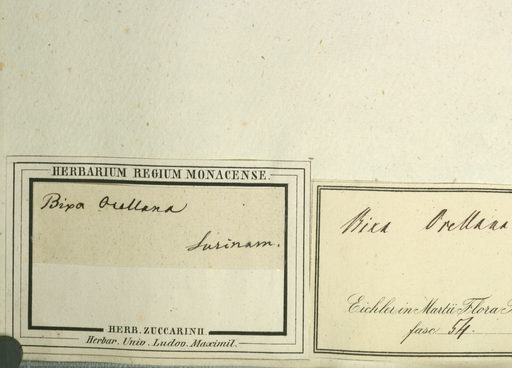 HERBARIUM REGIUM MONACENSE.
Bixa Orellana
Surinam.
HERB. ZUCCARINII
Herbar. Univ. Ludov. Maximil.
Bixa Orellana
Eichler in Martii Flora
fasc 54.